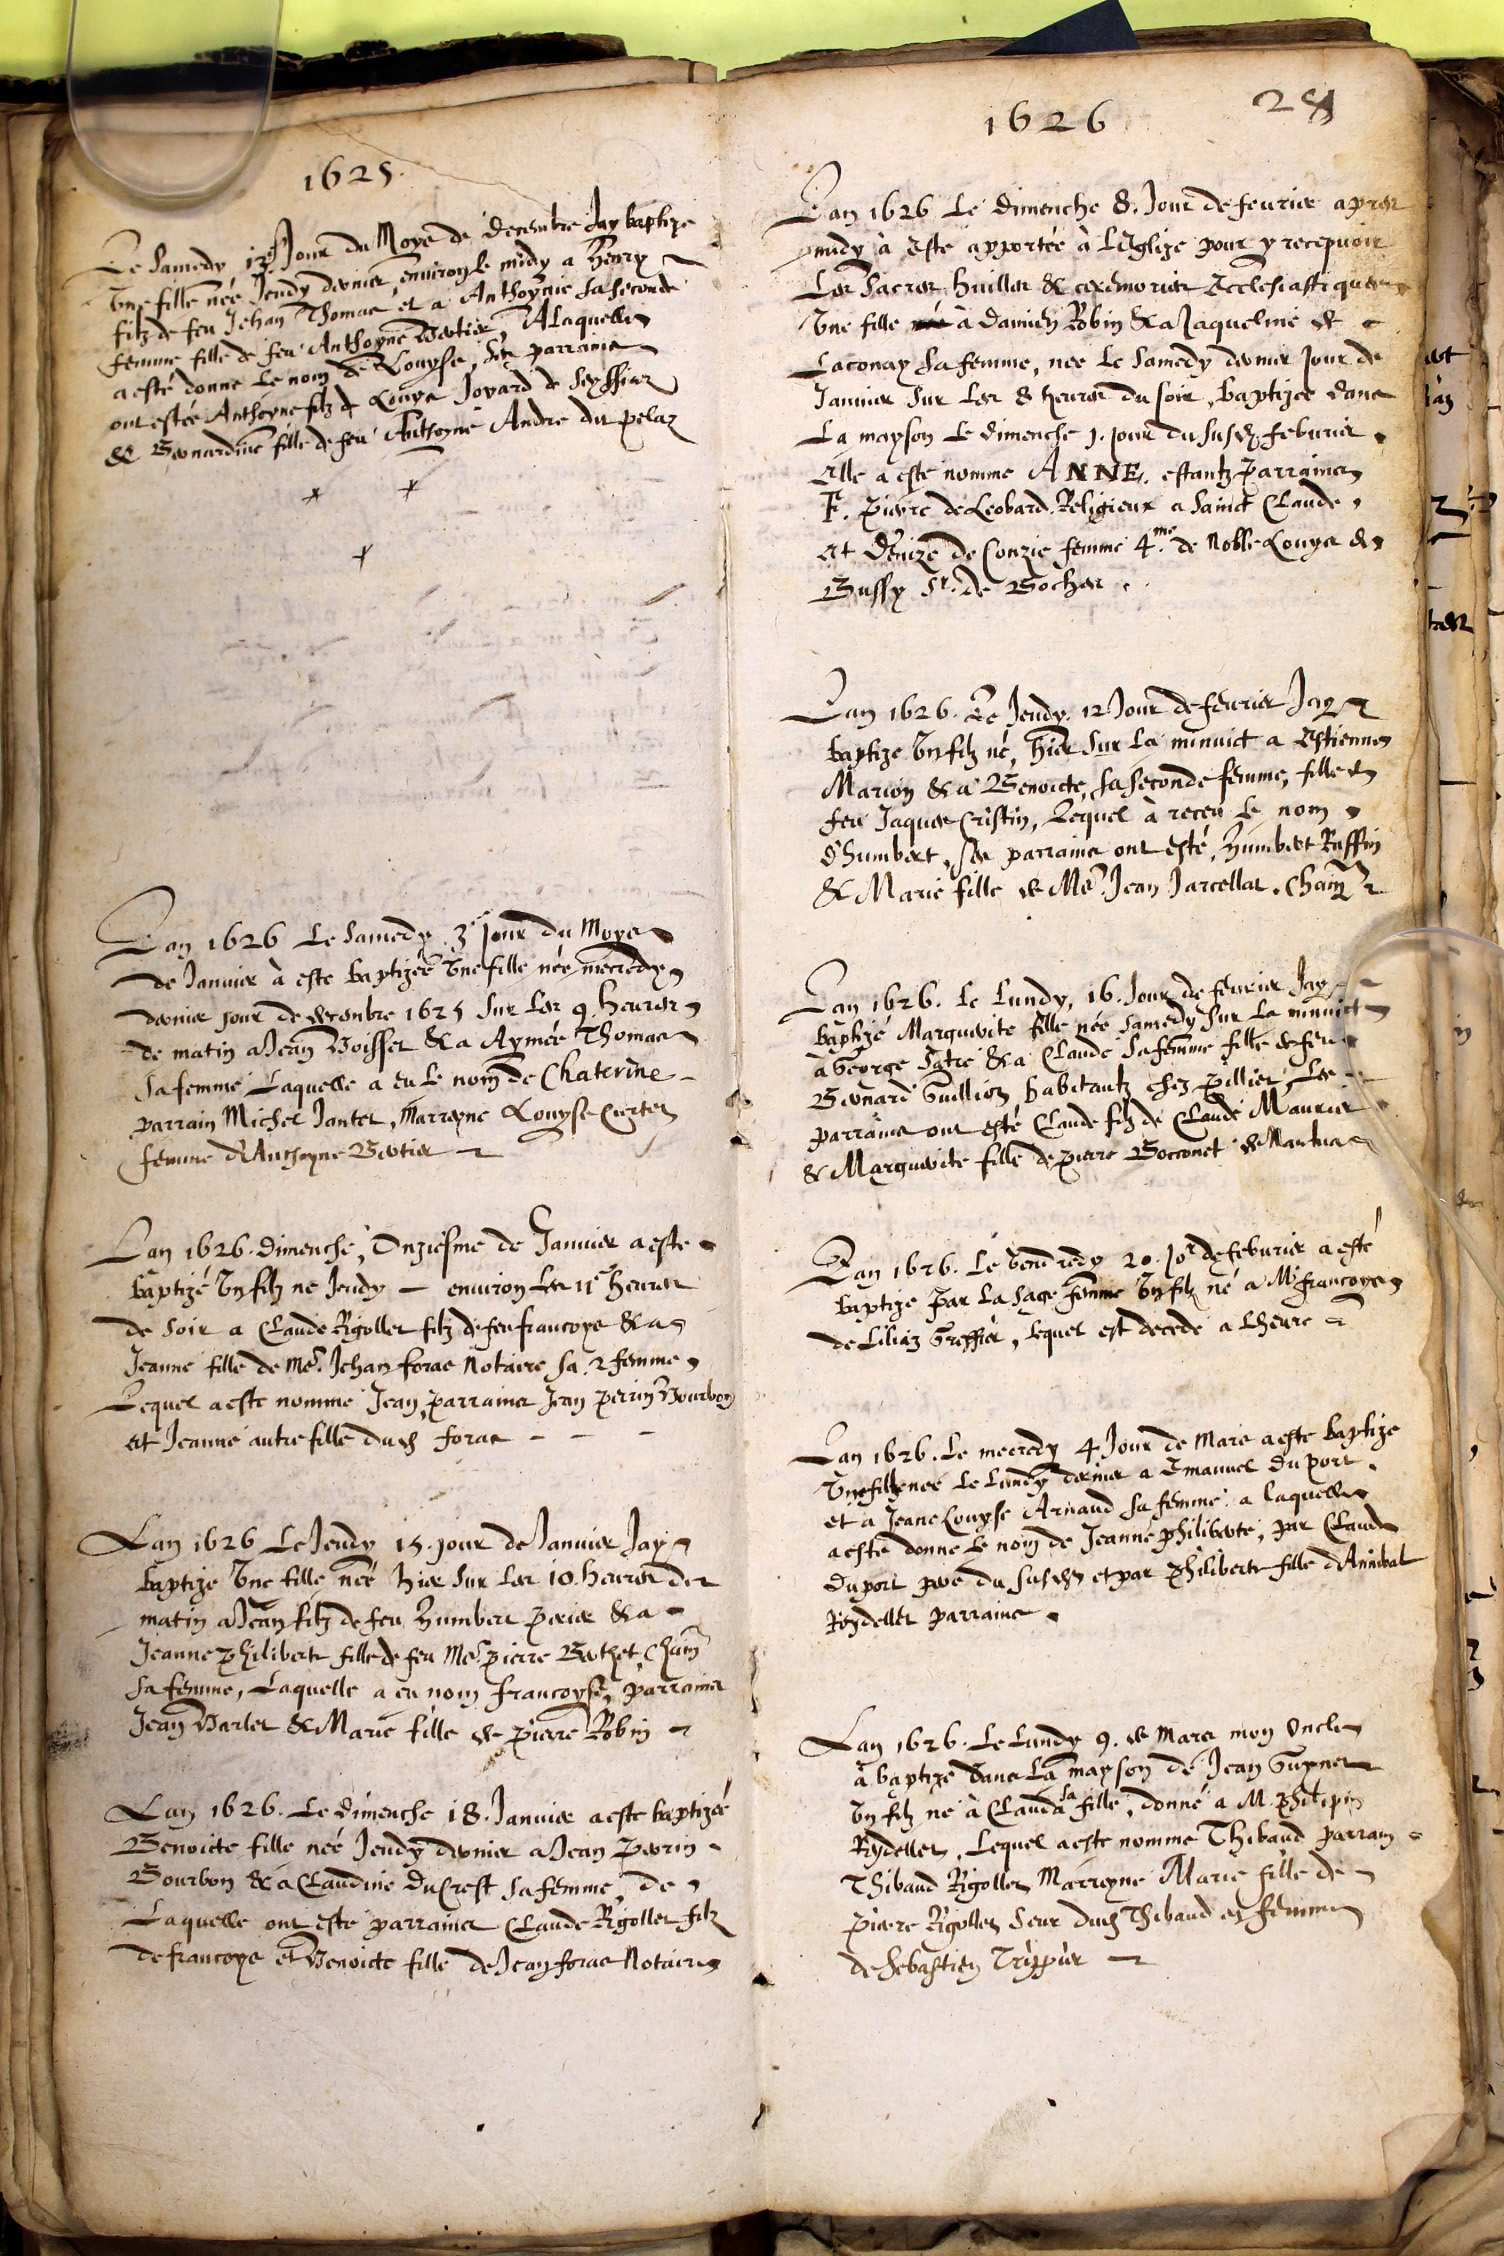 1625.
Le Samedy 13e Jour du Moys de decembre Jay baptize
Une fille née Jeudy dernier environ le midy a Henry
filz de feu Jehan Thomas et a Anthoynie sa seconde
femme fille de feu Anthoyne Bertier, A Laquelle
a esté donne le nom de Louyse, Ses parrains
ont estés Anthoyne filz de Louys Joyard de Seyssier
& Bernardine fille de feu Anthoyne Andre du pelaz
Lan 1626 Le Samedy 3e Jour du Moys
de Janvier à este baptizée Une fille née mecredy
dernier jour de decembre 1625 sur les 9. heures
de matin a Jean Boisset & a Aymée Thomas
sa femme Laquelle a eu le nom de Chaterine
parrain Michel Jantet, Marreyne Louyse Curtet
femme d'Anthoyne Bertier
Lan 1626. dimenche, Onziesme de Janvier a este
baptizé Un filz ne Jeudy environ les 11e heures
de soir a Claude Rigollet filz de feu francoys & a
Jeanne fille de Me. Jehan foras Notaire sa 2 femme,
Lequel a este nomme Jean, parrains Jean perrin Bourbon
et Jeanne autre fille dud foras
Lan 1626 Le Jeudy 15. jour de Janvier Jay
baptize Une fille née hier sur les 10. heures de
matin a Jean filz de feu Humbert perier & a
Jeanne philiberte fille de feu Me. pierre Berthet Cham
sa femme, Laquelle a eu nom francoyse, parrains
Jean Barlet & Marie fille de pierre Robin
Lan 1626. Le dimenche 18. Janvier a este baptizée
Benoicte fille née Jeudy dernier a Jean perrin
Bourbon & a Claudine du Crest sa femme, de
Laquelle ont este parrains Claude Rigollet filz
de francoys et Benoicte fille de Jean foras Notaire
1626
Lan 1626 Le dimenche 8. Jour de fevrier apres
midy à este apportée à LEglize pour y recepvoir
Les Sacres huilles & ceremonies Ecclesiastiques
Une fille à Damien Robin & a Jaqueline de
Laconay sa femme, nee le Samedy dernier jour de
Janvier sur les 8 heures du soir, baptizee dans
La mayson le dimenche 1. jour du susd. febvrier.
Elle a este nomme ANNE. estantz parrains
F. pierre de Leobard. Religieux a Sainct Claude.
et Denize de Conzie femme 4.me de Noble Louys de
Bussy Sr. de Boches.
Lan 1626. Le Jeudy. 12 Jour de fevrier Jay
baptize Un filz né, hier sur la minuict a Estienne
Marion & a Benoicte, sa seconde femme, fille de
feu Jaques Cristin, Lequel à receu le nom
d'humbert, ses parrains ont esté, Humbert Ruffin
& Marie fille de Me. Jean Jarcellat. Cham
Lan 1626. Le Lundy, 16. Jour de fevrier Jay
baptizé Marguerite fille née Samedy sur la minuict
à George Satre & a Claude sa femme fille de feu
Bernard Guillion habitantz chez pillier, Les
parrains ont esté Claude filz de Claude Maurier
& Marguerite fille de pierre Bocconet de Nantua
Lan 1626. Le Vendredy 20. Jor de febvrier a esté
baptize par la sage femme Un filz né a Mr francoys
de Liliaz Greffier, lequel est decede a Lheure
Lan 1626. Le mecredy 4 Jour de Mars a este baptize
Une fille née Le Lundy dernier a Emanuel Du port.
et a Jeane Louyse Arnaud sa femme. a laquelle
a esté donne le nom de Jeanne philiberte, par Claude
Du port pere du susd. et par Philiberte fille d'Annibal
Reydellet parrains.
Lan 1626. Le Lundy 9. de Mars mon Oncle
à baptize dans La mayson de Jean Guynet
Un filz ne à Clauda sa fille, donné a M. philipin
Reydellet, Lequel a este nomme Thibaud parrain
Thibaud Rigollet Marreyne Marie fille de
pierre Rigollet seur dud Thibaud et femme
de Sebastien Trippier